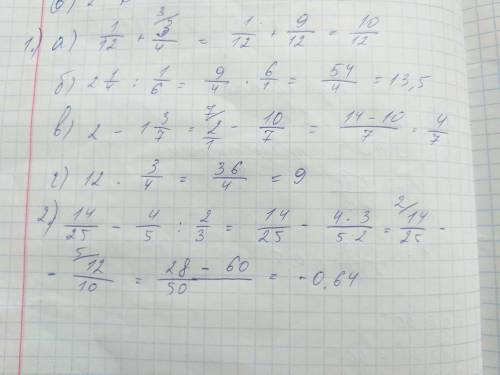 1.) а) 1/12 + 3/4 (3 = 1/12 + 9/12 = 10/12
б) 2 1/4 : 1/6 = 9/4 · 6/1 = 54/4 = 13,5
в) 2 - 1 3/7 = 2/1 (7 - 10/7 = 14-10/7 = 4/7
г) 12 · 3/4 = 36/4 = 9
2) 14/25 - 4/5 : 2/3 = 14/25 - 4·3/5·2 = 14/25 (2 -
- 12/10 (5 = 28-60/50 = -0,64